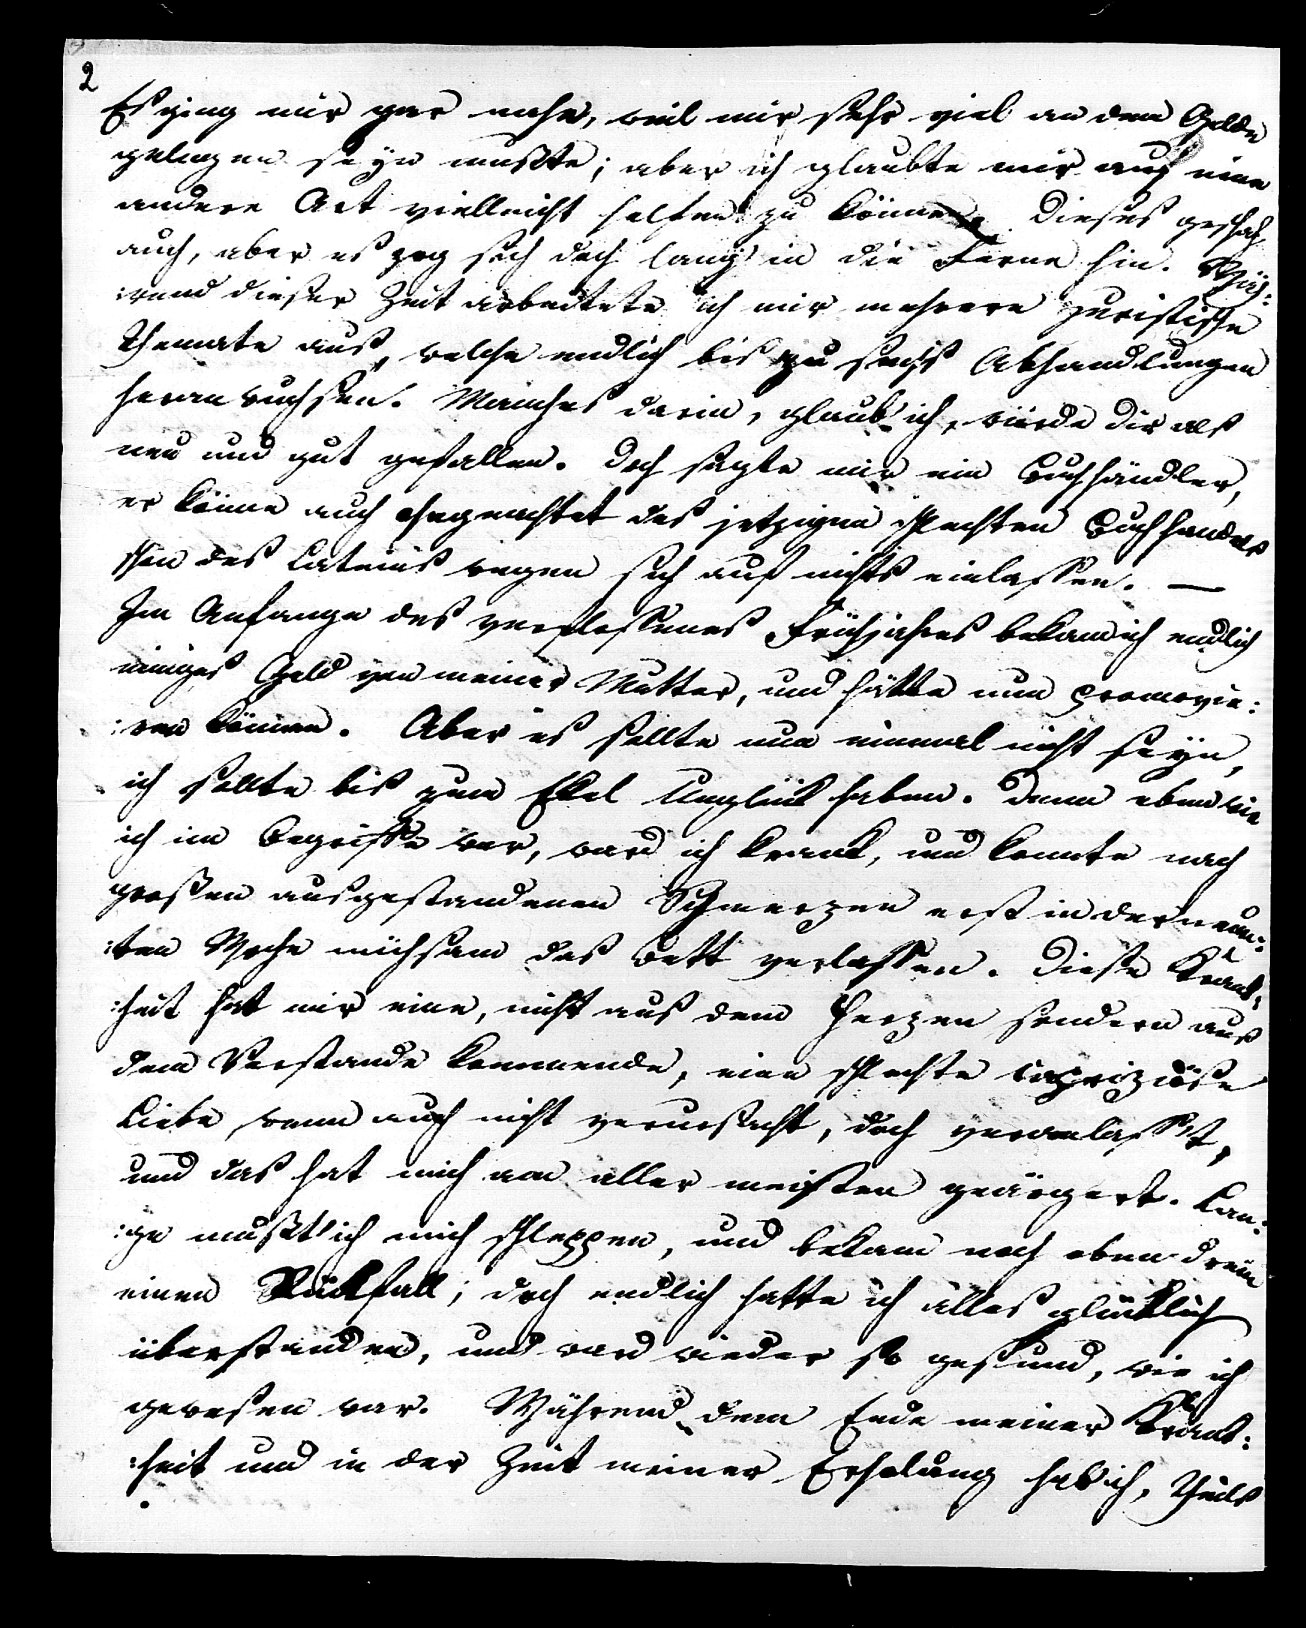 2
Es ging mir gar nahe, weil mir sehr viel an dem Gelde
gelegen seyn mußte; aber ich glaubte mir auf eine
andere Art vielleicht helfen zu können. Dieses geschah
auch, aber es zog sich doch lang in die Ferne hin. Wäh:
:rend dieser Zeit arbeitete ich mir mehrere juristische
Themate aus, welche endlich bis zu sechs Abhandlungen
heran wuchsen. Manches darin, glaub ich, würde dir als
neu und gut gefallen. Doch sagte mir ein Buchhändler,
er könne auch ohngeachtet des jetzigen schlechten Buchhandels
schon des Lateins wegen sich auf nichts einlassen. —
Im Anfange des verflossenes Frühjahres bekam ich endlich
einiges Geld von meiner Mutter, und hätte nun promovie:
:ren können. Aber es sollte nun einmal nicht seyn,
ich sollte bis zum Ekel Unglück haben. Denn eben wie
ich im Begriffe war, ward ich krank, und konnte nach
großen ausgestandenen Schmerzen erst in der neun:
:ten Woche mühsam das Bett verlassen. Diese Krank:
:heit hat mir eine, nicht aus dem Herzen sondern aus
dem Verstande kommende, eine schlechte capriziöse
Liebe, wenn auch nicht verursacht, doch veranlaßt,
und das hat mich am aller meisten geärgert. Lan:
:ge mußt' ich mich schleppen, und bekam noch oben drein
einen Rückfall; doch endlich hatte ich alles glücklich
überstanden, und ward wieder so gesund, wie ich
gewesen war. Während dem Ende meiner Krank:
:heit und in der Zeit meiner Erholung hab ich, theils